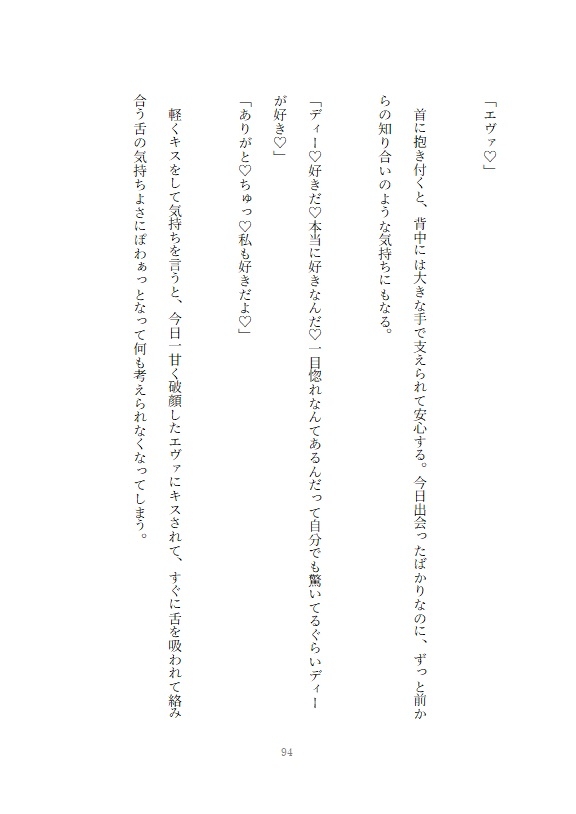 「エヴァ♡」
首に抱き付くと、背中には大きな手で支えられて安心する。今日出会ったばかりなのに、ずっと前か
らの知り合いのような気持ちにもなる。
「ディー♡好きだ♡本当に好きなんだ♡一目惚れなんてあるんだって自分でも驚いてるぐらいディー
が好き♡」
「ありがと♡ちゅっ♡私も好きだよ♡」
軽くキスをして気持ちを言うと、今日一甘く破顔したエヴァにキスされて、すぐに舌を吸われて絡み
合う舌の気持ちよさにぽわぁっとなって何も考えられなくなってしまう。
94